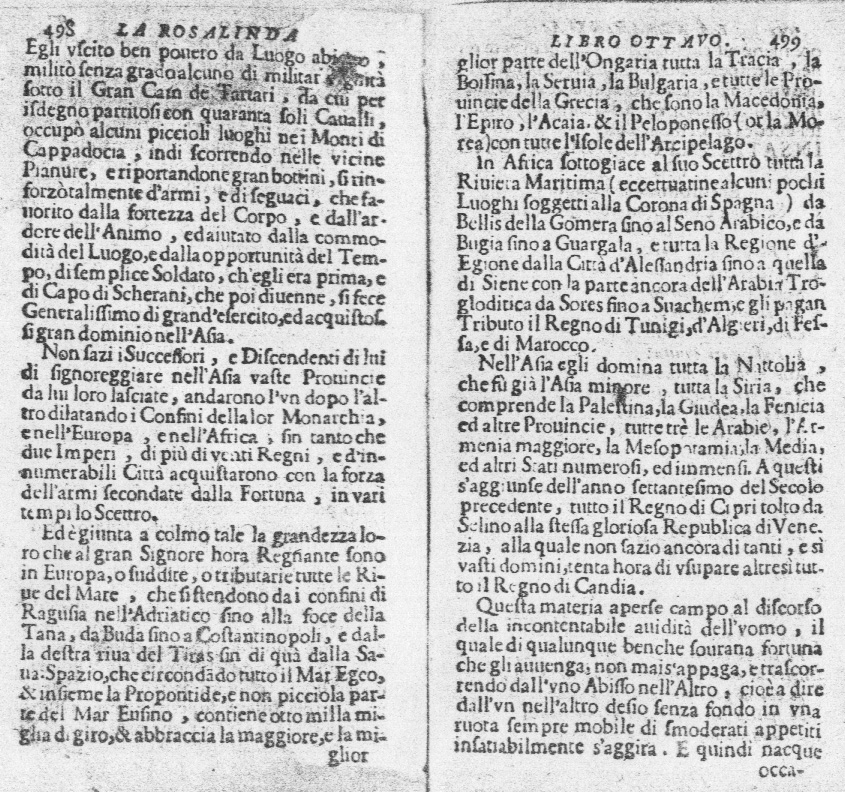 498 LA ROSALINDA
Egli vſcito ben pouero da Luogo
militò ſenza grado alcuno di militar
ſotto il Gran Cam de Tartari, da cui per
iſdegno partitoſi con quaranta ſoli Caualli,
occupò alcuni piccioli luoghi nei Monti di
Cappadocia, indi ſcorrendo nelle vicine
Pianure, e riportandone gran bottini, ſi rin-
forzò talmente d'armi, e di ſeguaci, che fa-
uorito dalla fortezza del Corpo, e dall'ar-
dere dell'Animo, ed aiutato dalla commo-
dità del Luogo, e dalla opportunità del Tem-
po, di ſemplice Soldato, ch'egli era prima, e
di Capo di Scherani, che poi diuenne, ſi fece
Generaliſſimo di grand'eſercito, ed acquiſtoſ-
ſi gran dominio nell'Aſia.
Non ſazi i Succeſſori, e Diſcendenti di lui
di ſignoreggiare nell'Aſia vaſte Prouincie
da lui loro laſciate, andarono l'vn dopo l'al-
tro dilatando i Confini della lor Monarchia,
e nell'Europa, e nell'Africa, ſin tanto che
due Imperi, di più di venti Regni, e d'in-
numerabili Città acquiſtarono con la forza
dell'armi ſecondate dalla Fortuna, in vari
tempi lo Scettro.
Ed è giunta a colmo tale la grandezza lo-
ro che al gran Signore hora Regnante ſono
in Europa, o ſuddite, o tributarie tutte le Ri-
ue del Mare, che ſi ſtendono dai confini di
Raguſia nell'Adriatico ſino alla foce della
Tana, da Buda ſino a Coſtantinopoli, e dal-
la deſtra riua del Tiras ſin di quà dalla Sa-
ua: Spazio, che circondado tutto il Mar Egeo,
& inſieme la Propontide, e non picciola par-
te del Mar Euſino, contiene otto milla mi-
glia di giro, & abbraccia la maggiore, e la mi-
glior
LIBRO OTTAVO. 499
glior parte dell'Ongaria tutta la Tracia, la
Boſſina, la Seruia, la Bulgaria, e tutte le Pro-
uincie della Grecia, che ſono la Macedonia,
l'Epiro, l'Acaia. & il Peloponeſſo (or la Mo-
rea) con tutte l'Iſole dell'Arcipelago.
In Africa ſottogiace al ſuo Scettro tutta la
Riuiera Maritima (eccettuatine alcuni pochi
Luoghi ſoggetti alla Corona di Spagna) da
Bellis della Gomera ſino al Seno Arabico, e da
Bugia ſino a Guargala, e tutta la Regione d'-
Egione dalla Città d'Aleſſandria ſino a quella
di Siene con la parte àncora dell'Arabia Tro-
gloditica da Sores ſino a Suachem; e gli pagan
Tributo il Regno di Tunigi, d'Algieri, di Feſ-
ſa, e di Marocco.
Nell'Aſia egli domina tutta la Nattolia,
che fù già l'Aſia minore, tutta la Siria, che
comprende la Paleſtina, la Giudea, la Fenicia
ed altre Prouincie, tutte trè le Arabie, l'Ar-
menia maggiore, la Meſopotamia, la Media,
ed altri Stati numeroſi, ed immenſi. A queſti
s'aggiunſe dell'anno ſettanteſimo del Secolo
precedente, tutto il Regno di Cipri tolto da
Selino alla ſteſſa glorioſa Republica di Vene-
zia, alla quale non ſazio ancora di tanti, e sì
vaſti domini, tenta hora di vſupare altresì tut-
to il Regno di Candia.
Queſta materia aperſe campo al diſcorſo
della incontentabile auidità dell'vomo, il
quale di qualunque benche ſourana fortuna
che gli auuenga, non mai s'appaga, e traſcor-
rendo dall'vno Abiſſo nell'Altro, cioè a dire
dall'vn nell'altro deſio ſenza fondo in vna
ruota ſempre mobile di ſmoderati appetiti
inſatiabilmente s'aggira. E quindi nacque
occa-